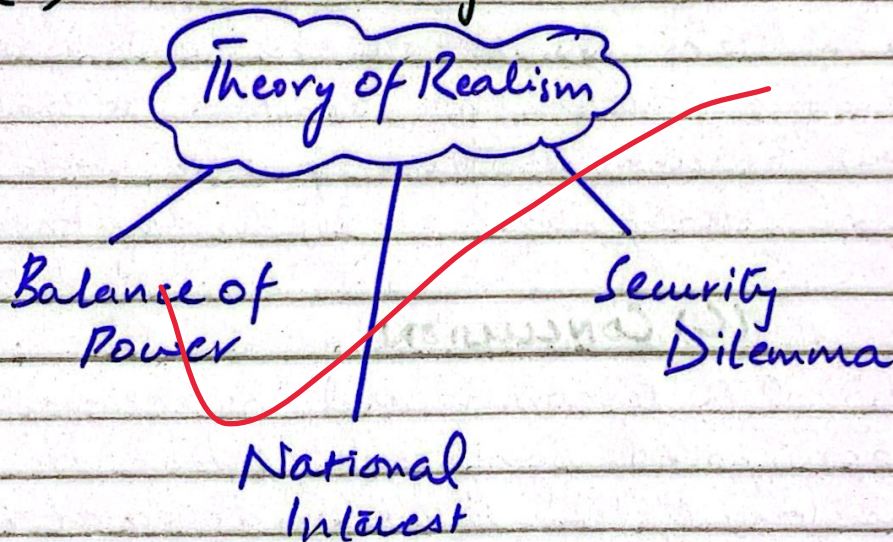 Theory of Realism
Balance of
Power
Security
Dilemma
National
Interest